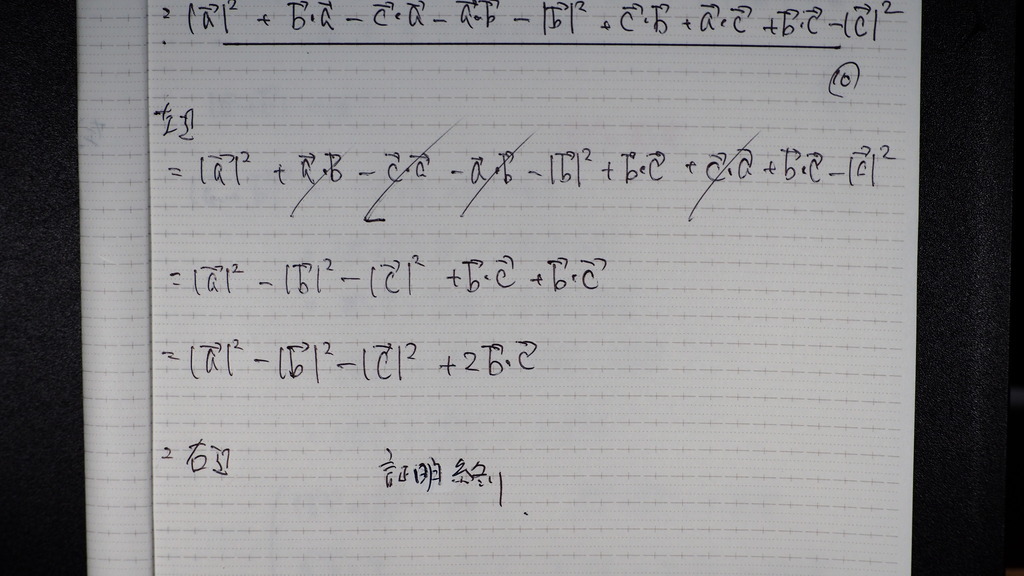 = |a⃗|² + b⃗·a⃗ − c⃗·a⃗ − a⃗·b⃗ − |b⃗|² + c⃗·b⃗ + a⃗·c⃗ + b⃗·c⃗ − |c⃗|²
⑩
左辺
= |a⃗|² + a⃗·b⃗ − c⃗·a⃗ − a⃗·b⃗ − |b⃗|² + b⃗·c⃗ + c⃗·a⃗ + b⃗·c⃗ − |c⃗|²
= |a⃗|² − |b⃗|² − |c⃗|² + b⃗·c⃗ + b⃗·c⃗
= |a⃗|² − |b⃗|² − |c⃗|² + 2b⃗·c⃗
= 右辺 証明終り